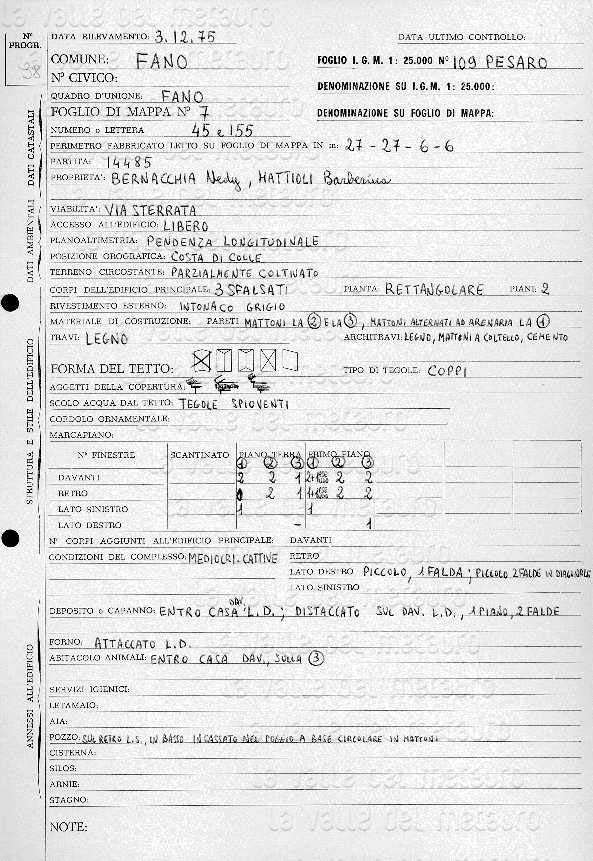 la valle del metauro
N° PROGR. 38
DATA RILEVAMENTO: 3.12.75 DATA ULTIMO CONTROLLO:
COMUNE: FANO FOGLIO I. G. M. 1: 25.000 N° 109 PESARO
N° CIVICO: DENOMINAZIONE SU I.G.M. 1: 25.000:
QUADRO D'UNIONE: FANO
FOGLIO DI MAPPA N° 7 DENOMINAZIONE SU FOGLIO DI MAPPA:
NUMERO o LETTERA 45 e 155
PERIMETRO FABBRICATO LETTO SU FOGLIO DI MAPPA IN m: 27-27-6-6
PARTITA: 14485
PROPRIETA': BERNACCHIA Nedy, MATTIOLI Barberina
DATI CATASTALI
VIABILITA': VIA STERRATA
ACCESSO ALL'EDIFICIO: LIBERO
PLANOALTIMETRIA: PENDENZA LONGITUDINALE
POSIZIONE OROGRAFICA: COSTA DI COLLE
TERRENO CIRCOSTANTE: PARZIALMENTE COLTIVATO
DATI AMBIENTALI
CORPI DELL'EDIFICIO PRINCIPALE: 3 SFALSATI PIANTA RETTANGOLARE PIANI: 2
RIVESTIMENTO ESTERNO: INTONACO GRIGIO
MATERIALE DI COSTRUZIONE: PARETI MATTONI LA 2 E LA 3, MATTONI ALTERNATI AD ARENARIA LA 1
TRAVI: LEGNO ARCHITRAVI: LEGNO, MATTONI A COLTELLO, CEMENTO
FORMA DEL TETTO: TIPO DI TEGOLE: COPPI
AGGETTI DELLA COPERTURA:
SCOLO ACQUA DAL TETTO: TEGOLE SPIOVENTI
CORDOLO ORNAMENTALE:
MARCAPIANO:
N° FINESTRE SCANTINATO PIANO TERRA PRIMO PIANO
1 2 3 1 2 3
DAVANTI 2 2 1 2 2
RETRO 2 1 2 2
LATO SINISTRO 1 1
LATO DESTRO - 1
STRUTTURA E STILE DELL'EDIFICIO
N° CORPI AGGIUNTI ALL'EDIFICIO PRINCIPALE: DAVANTI
CONDIZIONI DEL COMPLESSO: MEDIOCRI-CATTIVE RETRO
LATO DESTRO PICCOLO, 1 FALDA; PICCOLO 2 FALDE IN DIAGONALE
LATO SINISTRO
DEPOSITO o CAPANNO: ENTRO CASA DAV. L.D.; DISTACCATO SUL DAV. L.D., 1 PIANO, 2 FALDE
FORNO: ATTACCATO L.D.
ABITACOLO ANIMALI: ENTRO CASA DAV., SULLA 3
SERVIZI IGIENICI:
LETAMAIO:
AIA:
POZZO: SUL RETRO L.S., IN BASSO INCASSATO NEL POGGIO A BASE CIRCOLARE IN MATTONI
CISTERNA:
SILOS:
ARNIE:
STAGNO:
ANNESSI ALL'EDIFICIO
NOTE:
la valle del metauro